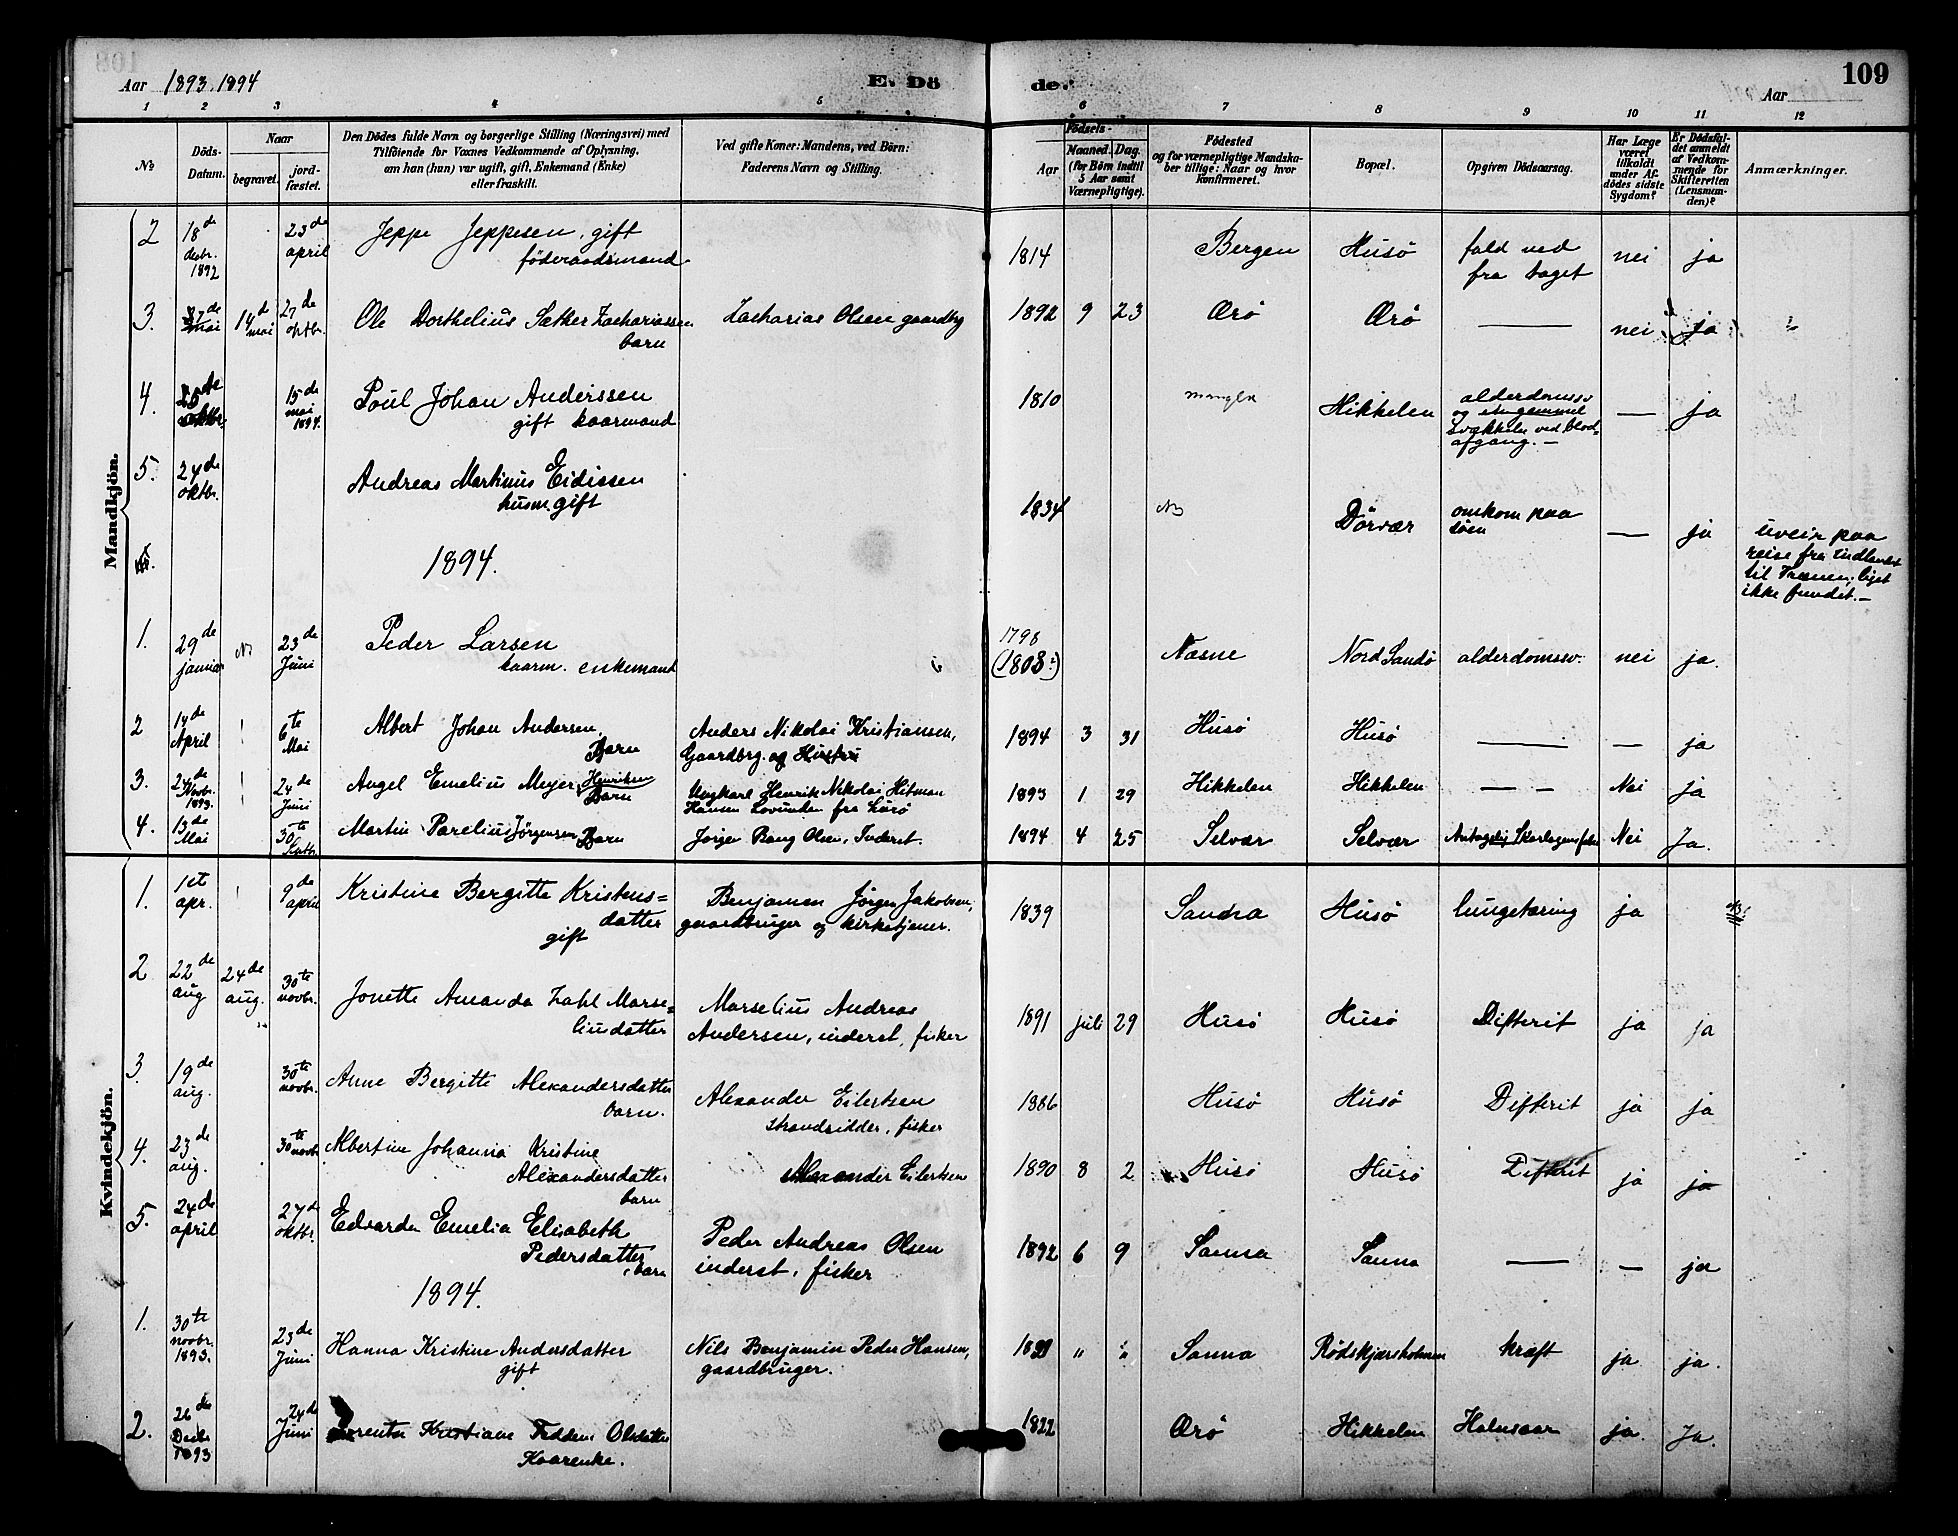 Aar 1893. 1894
E. Dö
de.
109
Aar
1 2 3 4 5 6 7 8 9 10 11 12
No
Döds-Datum.
Naar
begravet.
jord-fæstet.
Den Dödes fulde Navn og borgerlige Stilling (Næringsvei) med
Tilföiende for Voxnes Vedkommende af Oplysning,
om han (hun) var ugift, gift, Enkemand (Enke)
eller fraskilt.
Ved gifte Koner: Mandens, ved Börn:
Faderens Navn og Stilling.
Födsels-
Aar
Maaned. Dag.
(for Börn indtil
5 Aar samt
Værnepligtige).
Födested
og for værnepligtige Mandska-
ber tillige: Naar og hvor
konfirmeret.
Bopæl.
Opgiven Dödsaarsag.
Har Læge
været
tilkaldt
under Af-
dödes sidste
Sygdom?
Er Dödsfal-
det anmeldt
af Vedkom-
mende for
Skifteretten
(Lensman-
den)?
Anmærkninger.
Mandkjön.
2 18de desbr. 1892 23de april Jeppe Jeppesen, gift 1814 Bergen Husö fald ved nei ja
föderaadsmand fra taget
3. 14d mai 27de oktbr. Ole Dorthelius Sæther Zachariassen Zacharias Olsen gaardbg 1892 9 23 Ærö Ærö — nei ja
barn
4. oktbr. 15de mai 1894. Poul Johan Anderssen 1810 mangler Hikkelen alderdomssv — ja
gift kaarmand og
svækkelse ved blod-
afgang. —
5. 24de oktbr. Andreas Martinus Eidissen 1834 Dörvær omkom paa — ja uveir paa
husm. gift söen reise fra Indlandet
til Trænen; liget
ikke fundet. —
1894.
1. 29de januar 23de Juni Peder Larsen 1798 Næsne Nord Sandö alderdomssv. nei ja.
kaarm. enkemand (1808?)
2 14de April 6te Mai Albert Johan Andersen, Anders Nikolai Kristiansen, 1894 3 31 Husö Husö — — ja
Barn Gaardbrg. og Hustru
3. 24de Novbr. 1893. 24de Juni Angel Emelius Meyer Henriksen Ungkarl Henrik Nikolai Hitman 1893 1 29 Hikkelen Hikkelen — — Nei ja
Barn Hansen Lovunden fra Lurö
4. 13de Mai 30te Septbr. Martin Parelius Jörgensen Barn Jörgen Bang Olsen, Inderst. 1894 4 25 Selvær Selvær Antagelig Skarlagensfeber Nei Ja.
Kvindekjön.
1. 1ste apr. 9de april Kristine Bergitte Kristens= Benjamen Jörgen Jakobsen, 1839 Sandra Husö lungetæring ja
datter gaardbruger og kirketjener.
gift
2 22de aug 24de aug. 30te novbr. Jonette Amanda Zahl Marse= Marselius Andreas 1891 juli 29 Husö Husö Difterit ja ja
liusdatter Andersen, inderst, fisker
3. 19de aug. 30te novbr. Anne Bergitte Alexandersdatter Alexander Eilertsen 1886 Husö Husö Difterit ja ja
barn. strandsidder, fisker
4. 23de aug. 30te novbr Albertine Johanna Kristine Alexander Eilertsen 1890 8 2 Husö Husö Difterit ja ja
Alexandersdatter
barn
5. 24de april 27d oktbr. Edvarda Emelia Elisabeth Peder Andreas Olsen 1892 6 9 Sanna Sanna — — ja
Pedersdatter, barn inderst, fisker
1894.
1. 30te novbr. 1893. 23de Juni Hanna Kristine Andersdatter Nils Benjamin Peder Hansen, " " Sanna Rödskjærsholmen kræft ja ja.
gift gaardbruger.
2. 26de Decbr 1893 24de Juni Kristiane Feddem Olsdatter 1822 Ærö Hikkelen ja. Ja.
Kaarenke.